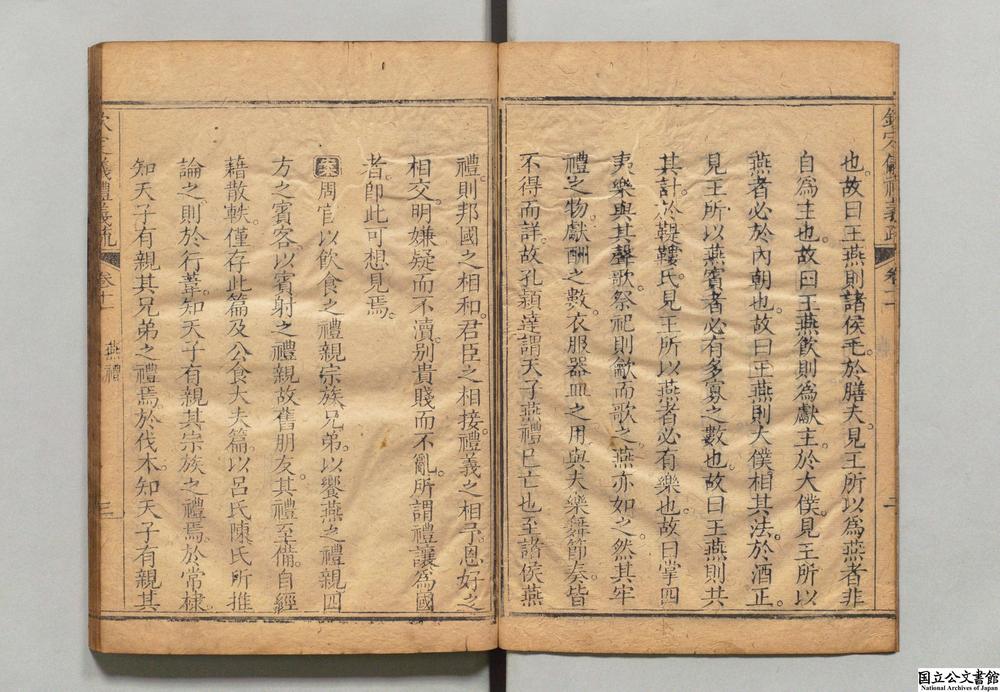 也。故曰王燕則諸侯毛。於膳夫。見王所以為燕者非
自為主也。故曰王燕飲則為獻主。於大僕。見王所以
燕者必於內朝也。故曰王燕則大僕相其法。於酒正。
見王所以燕賓者必有多寡之數也。故曰王燕則共
其計。於鞮鞻氏。見王所以燕者必有樂也。故曰掌四
夷樂與其聲歌。祭祀則龡而歌之。燕亦如之。然其牢
禮之物。獻酬之數。衣服器皿之用。與夫樂舞節奏。皆
不得而詳。故孔穎達謂天子燕禮已亡也。至諸侯燕
禮。則邦國之相和。君臣之相接。禮義之相予。恩好之
相交。明嫌疑而不瀆。別貴賤而不亂。所謂禮讓為國
者。卽此可想見焉。
案周官以飲食之禮親宗族兄弟。以饗燕之禮親四
方之賓客。以賓射之禮親故舊朋友。其禮至備。自經
藉散軼。僅存此篇及公食大夫篇。以呂氏陳氏所推
論之。則於行葦知天子有親其宗族之禮焉。於常棣。
知天子有親其兄弟之禮焉。於伐木。知天子有親其
儀禮義疏 卷十一 燕禮 三
国立公文書館
National Archives of Japan